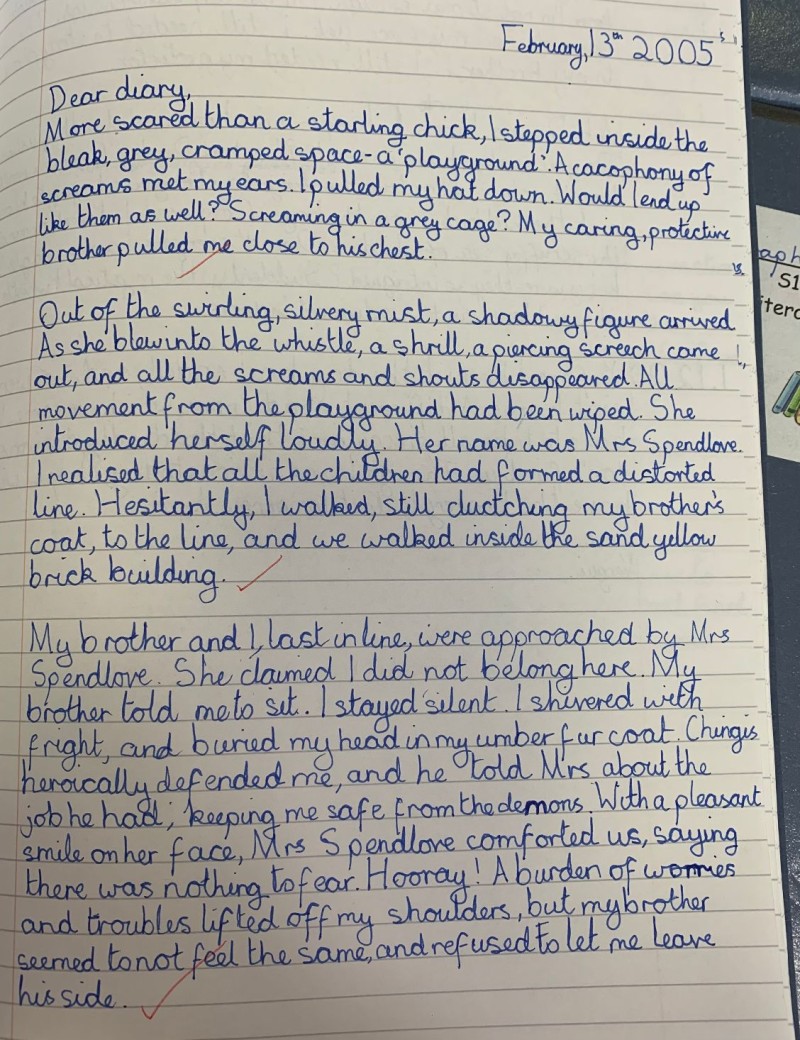 February, 13th 2005
Dear diary,
More scared than a starling chick, I stepped inside the
bleak, grey, cramped space - a 'playground'. A cacophony of
screams met my ears. I pulled my hat down. Would I end up
like them as well? Screaming in a grey cage? My caring, protective
brother pulled me close to his chest.
Out of the swirling, silvery mist, a shadowy figure arrived.
As she blew into the whistle, a shrill, a piercing screech came
out, and all the screams and shouts disappeared. All
movement from the playground had been wiped. She
introduced herself loudly. Her name was Mrs Spendlove.
I realised that all the children had formed a distorted
line. Hesitantly, I walked, still cluctching my brother's
coat, to the line, and we walked inside the sand yellow
brick building.
My brother and I, last in line, were approached by Mrs
Spendlove. She claimed I did not belong here. My
brother told me to sit. I stayed silent. I shivered with
fright, and buried my head in my umber fur coat. Chingis
heroically defended me, and he told Mrs about the
job he had; keeping me safe from the demons. With a pleasant
smile on her face, Mrs Spendlove comforted us, saying
there was nothing to fear. Hooray! A burden of worries
and troubles lifted off my shoulders, but my brother
seemed to not feel the same, and refused to let me leave
his side.
aph
S1
iterc